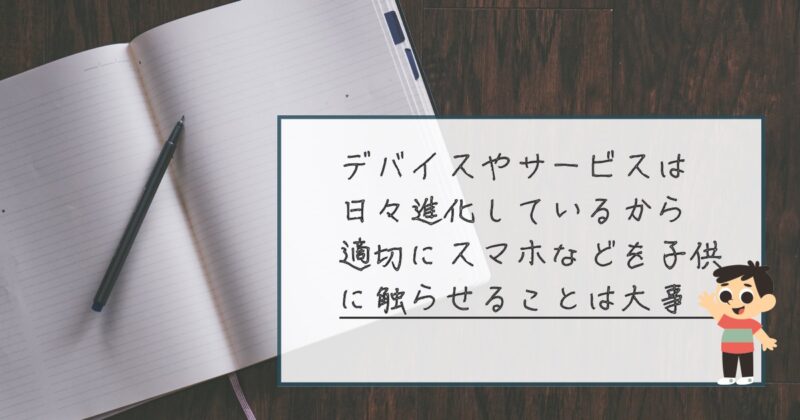 デバイスやサービスは
日々進化しているから
適切にスマホなどを子供
に触らせることは大事